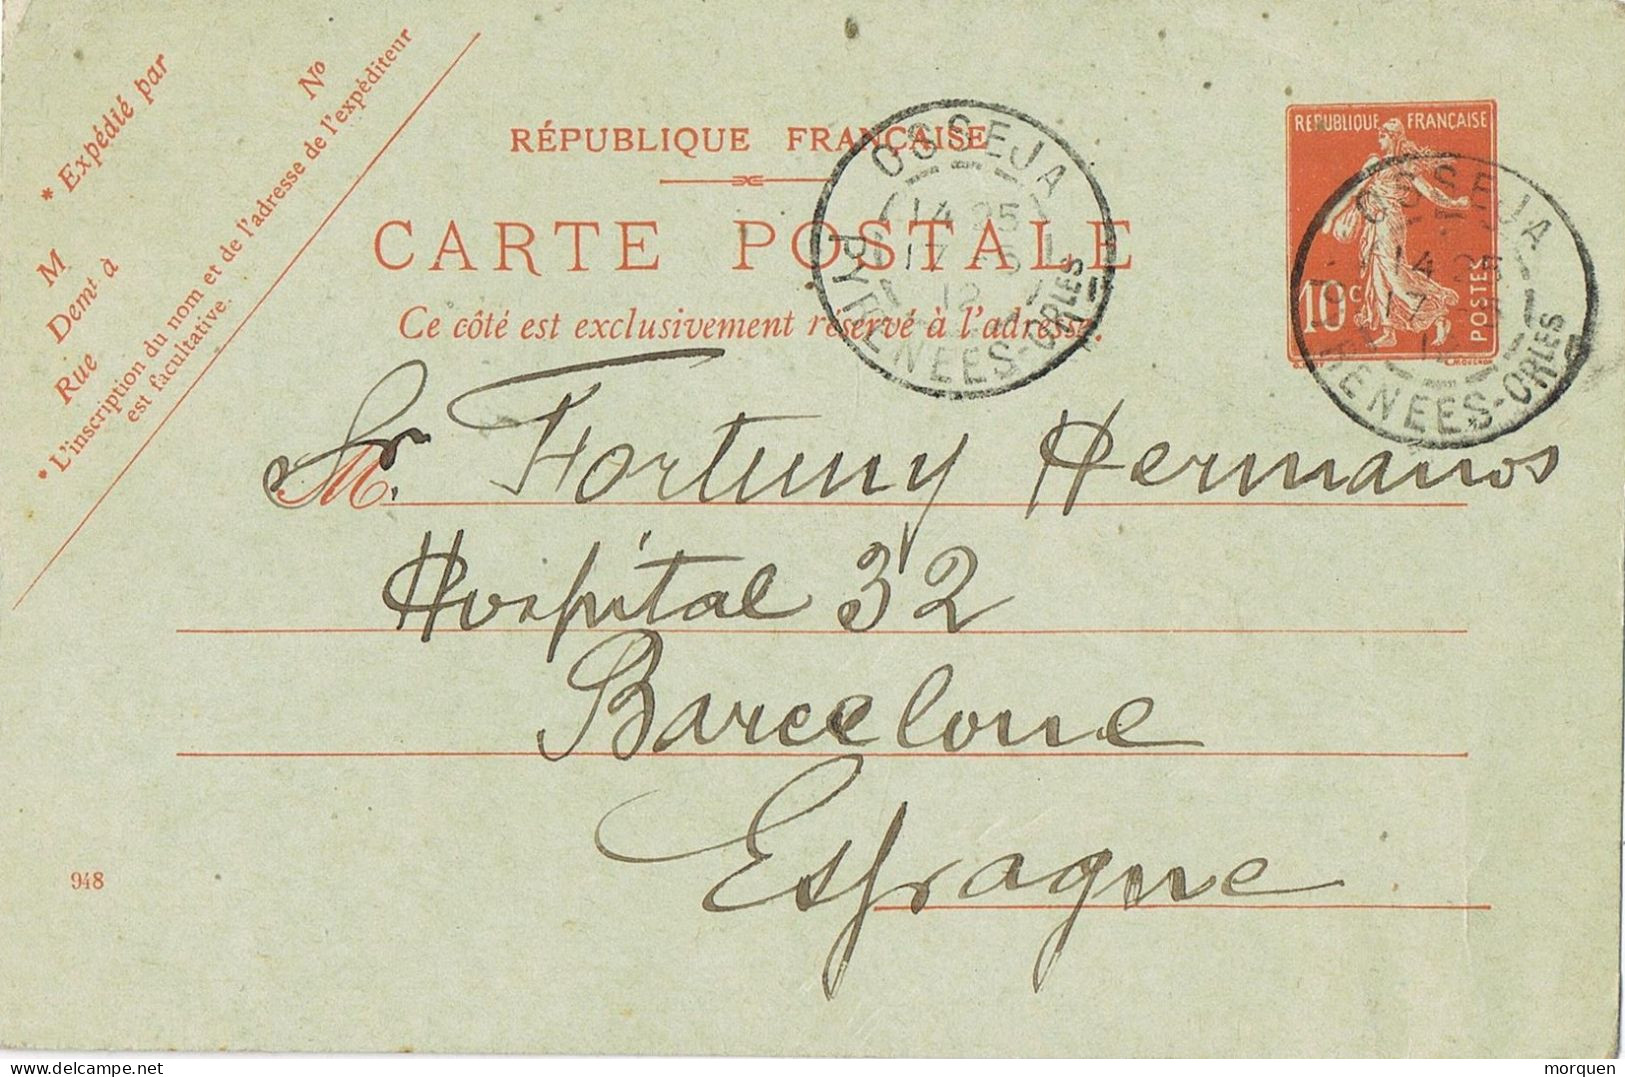 * Expédié par
N°
M
Demt à
Rue
* L'inscription du nom et de l'adresse de l'expéditeur
est facultative.
RÉPUBLIQUE FRANÇAISE
CARTE POSTALE
Ce côté est exclusivement réservé à l'adresse.
OSSEJA
14 25
17
12
PYRENEES-ORLES
REPUBLIQUE FRANÇAISE
10c
POSTES
OSSEJA
14 25
17
12
PYRENEES-ORLES
M.
Sr. Fortuny Hermanos
Hospital 32
Barcelone
Espagne
948
morquen